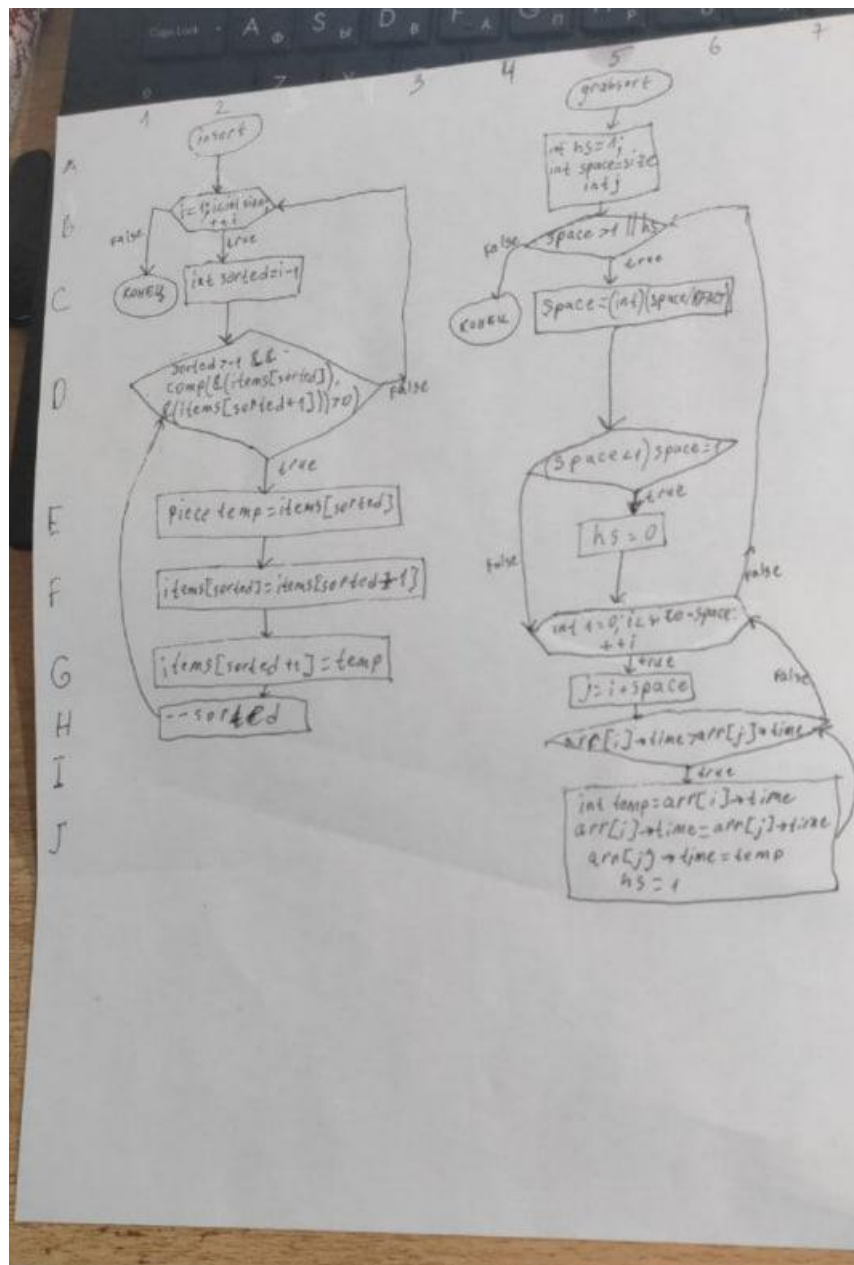 Caps Lock
A Ф
S Ы
D В
F А
G П
1
2
3
4
5
6
7
A
B
C
D
E
F
G
H
I
J
insert
++i
False
true
int sorted=i-1
КОНЕЦ
sorted>-1 &&
comp(&(items[sorted]),
&(items[sorted+1]))>0)
False
true
piece temp=items[sorted]
items[sorted]=items[sorted+1]
items[sorted+1]=temp
--sorted
int hs=1;
int space=size
int j
space>1 || hs
False
true
КОНЕЦ
space=(int)(space/RFACT)
(space<1) space=1
true
False
hs=0
int i=0; i<size-space;
++i
False
true
j=i+space
False
arr[i]→time>arr[j]→time
true
int temp=arr[i]→time
arr[i]→time=arr[j]→time
arr[j]→time=temp
hs=1